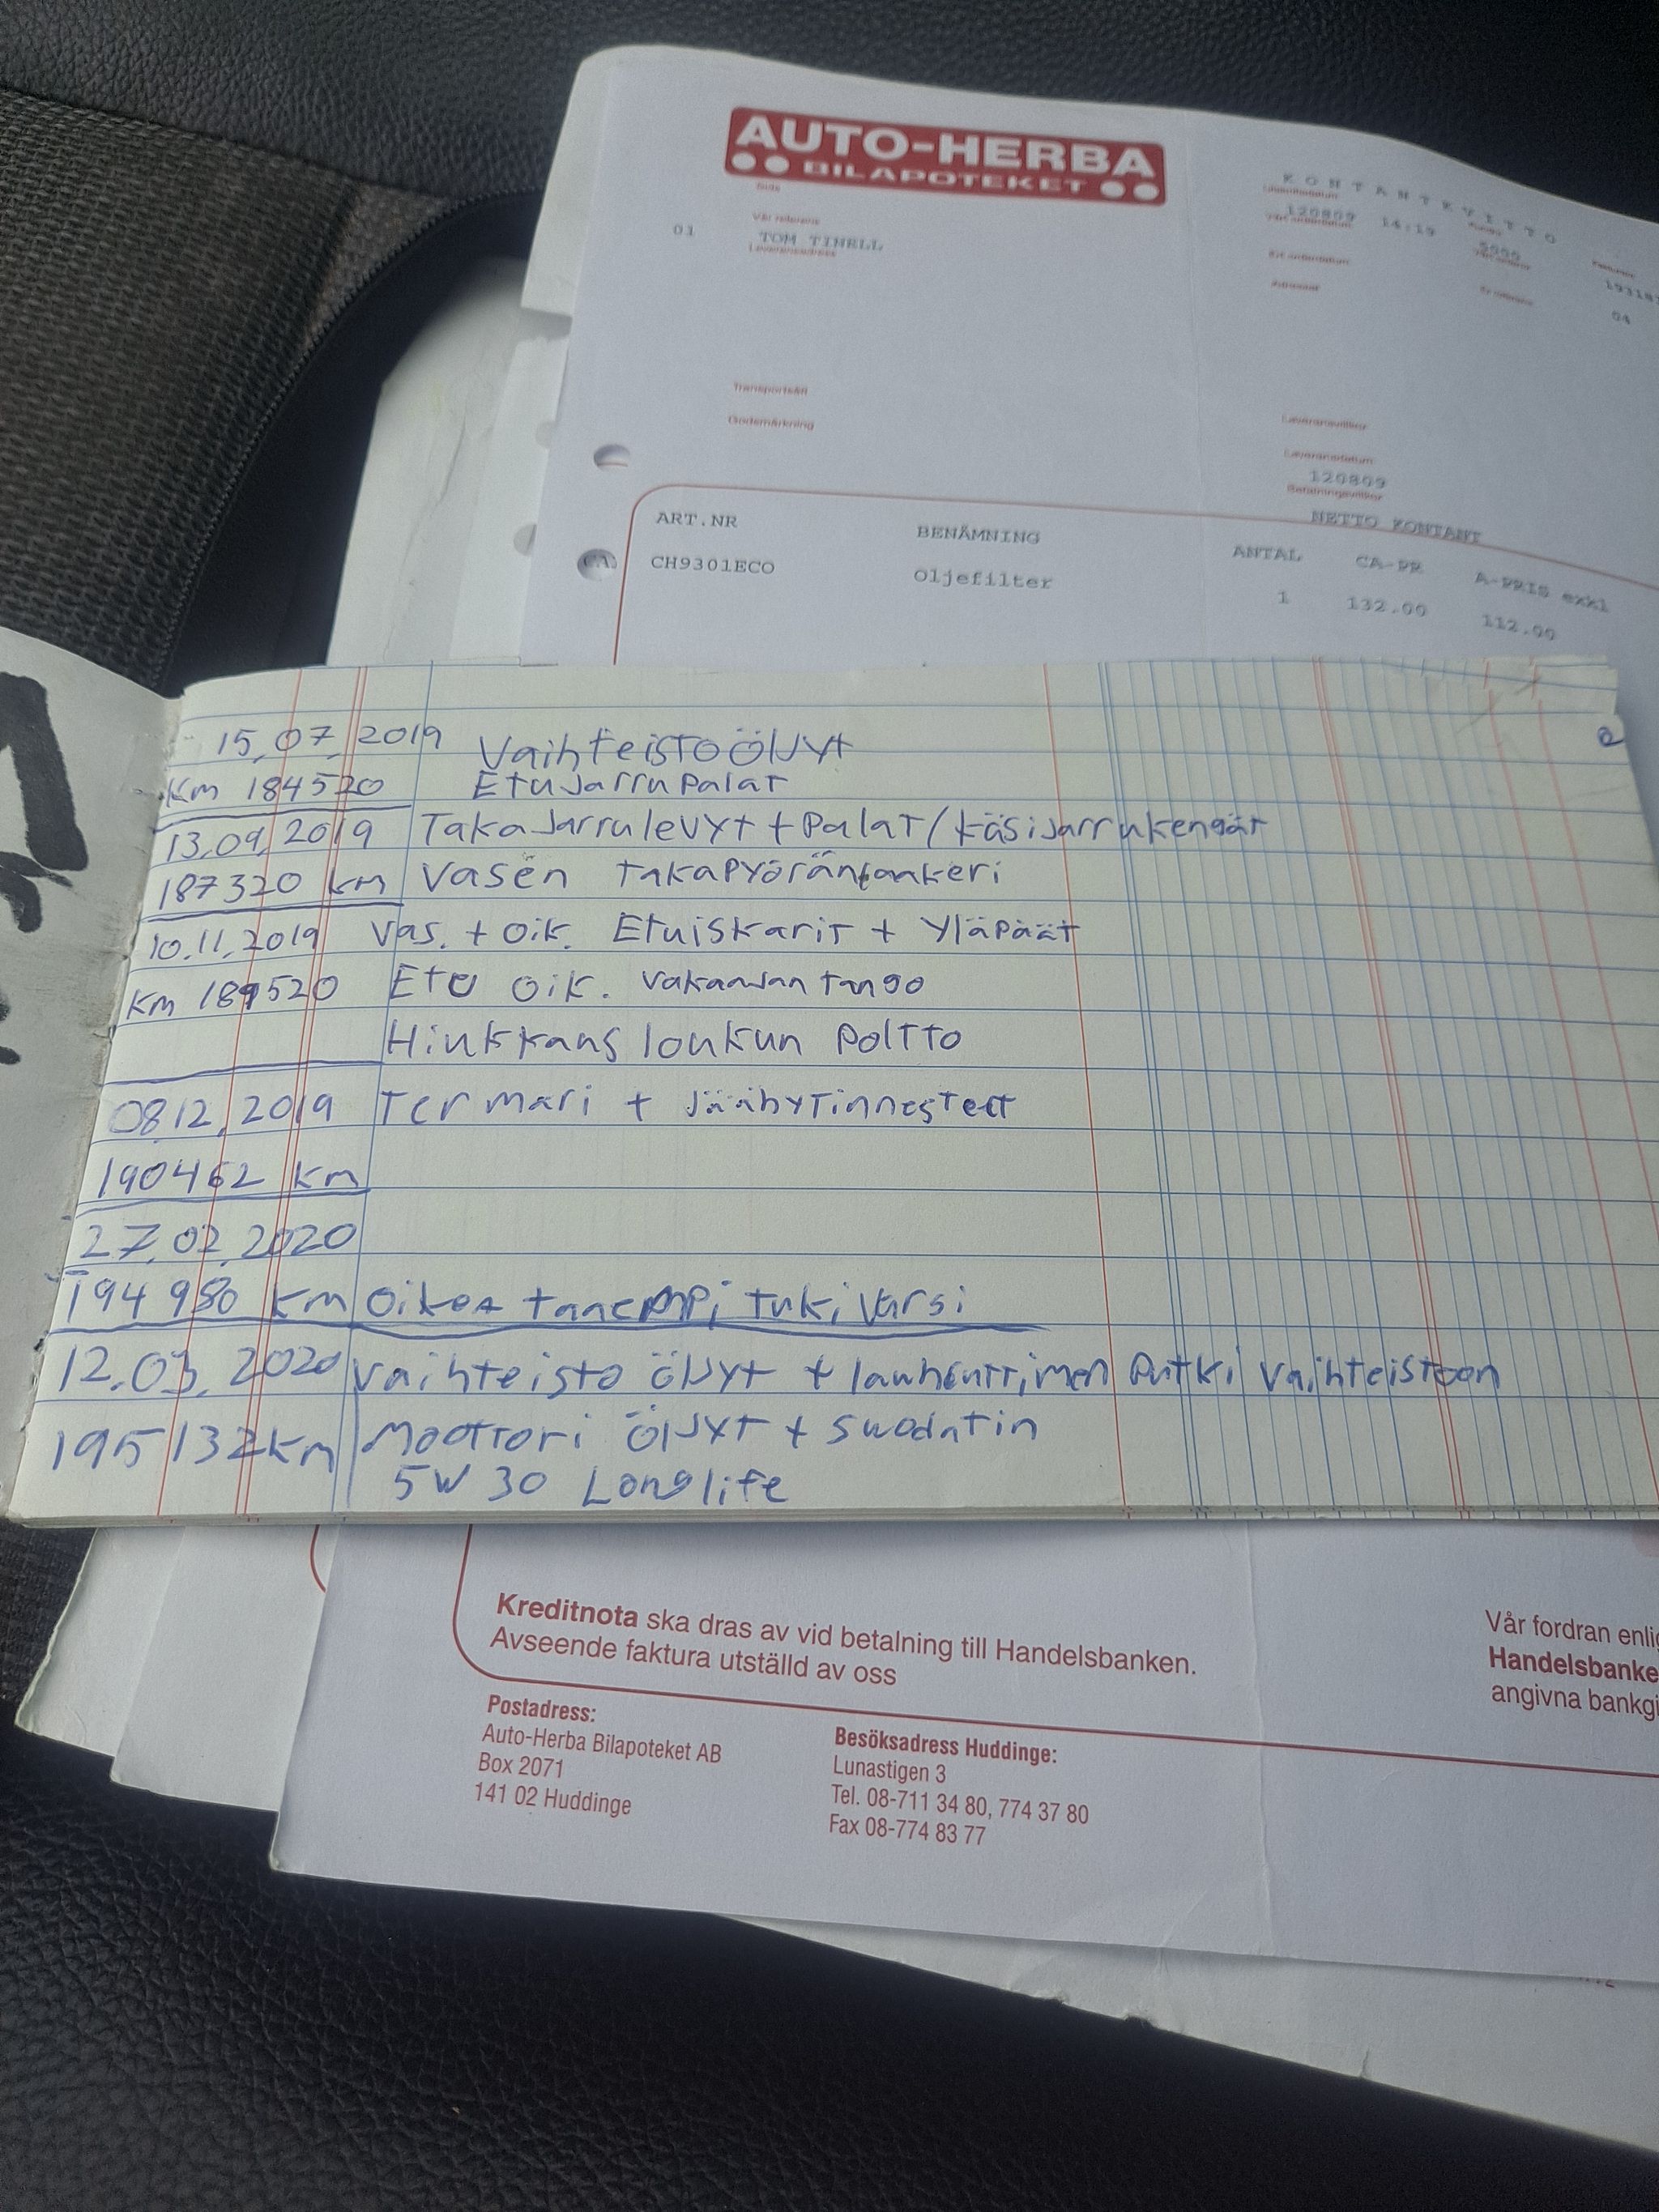 AUTO-HERBA
BILAPOTEKET
KONTANTKVITTO
Vår referens
01 TOM TINELL
Leveransadress
120809 14:19
Transportsätt
Godsmärkning
Leveransvillkor
Leveransdatum
120809
NETTO KONTANT
ART.NR BENÄMNING ANTAL CA-PR A-PRIS exkl
CH9301ECO Oljefilter 1 132.00 112.00
15,07,2019 Vaihteistoöljyt
Km 184520 Etujarrupalat
13,09,2019 Takajarrulevyt + Palat/käsijarrukengät
187320 km Vasen takapyöränlaakeri
10.11.2019 Vas. + oik. Etuiskarit + yläpäät
Km 189520 Etu oik. vakaajan tango
Hiukkansloukun Poltto
08,12,2019 Termari + Jäähytinnesteet
190462 km
27,02,2020
194 980 km Oikea taaempi tukivarsi
12.03.2020 Vaihteisto öljyt + lauhduttimen Putki Vaihteistoon
195132km Moottori öljyt + suodatin
5W 30 Longlife
Kreditnota ska dras av vid betalning till Handelsbanken.
Avseende faktura utställd av oss
Vår fordran enli
Handelsbanke
angivna bankgi
Postadress:
Auto-Herba Bilapoteket AB
Box 2071
141 02 Huddinge
Besöksadress Huddinge:
Lunastigen 3
Tel. 08-711 34 80, 774 37 80
Fax 08-774 83 77